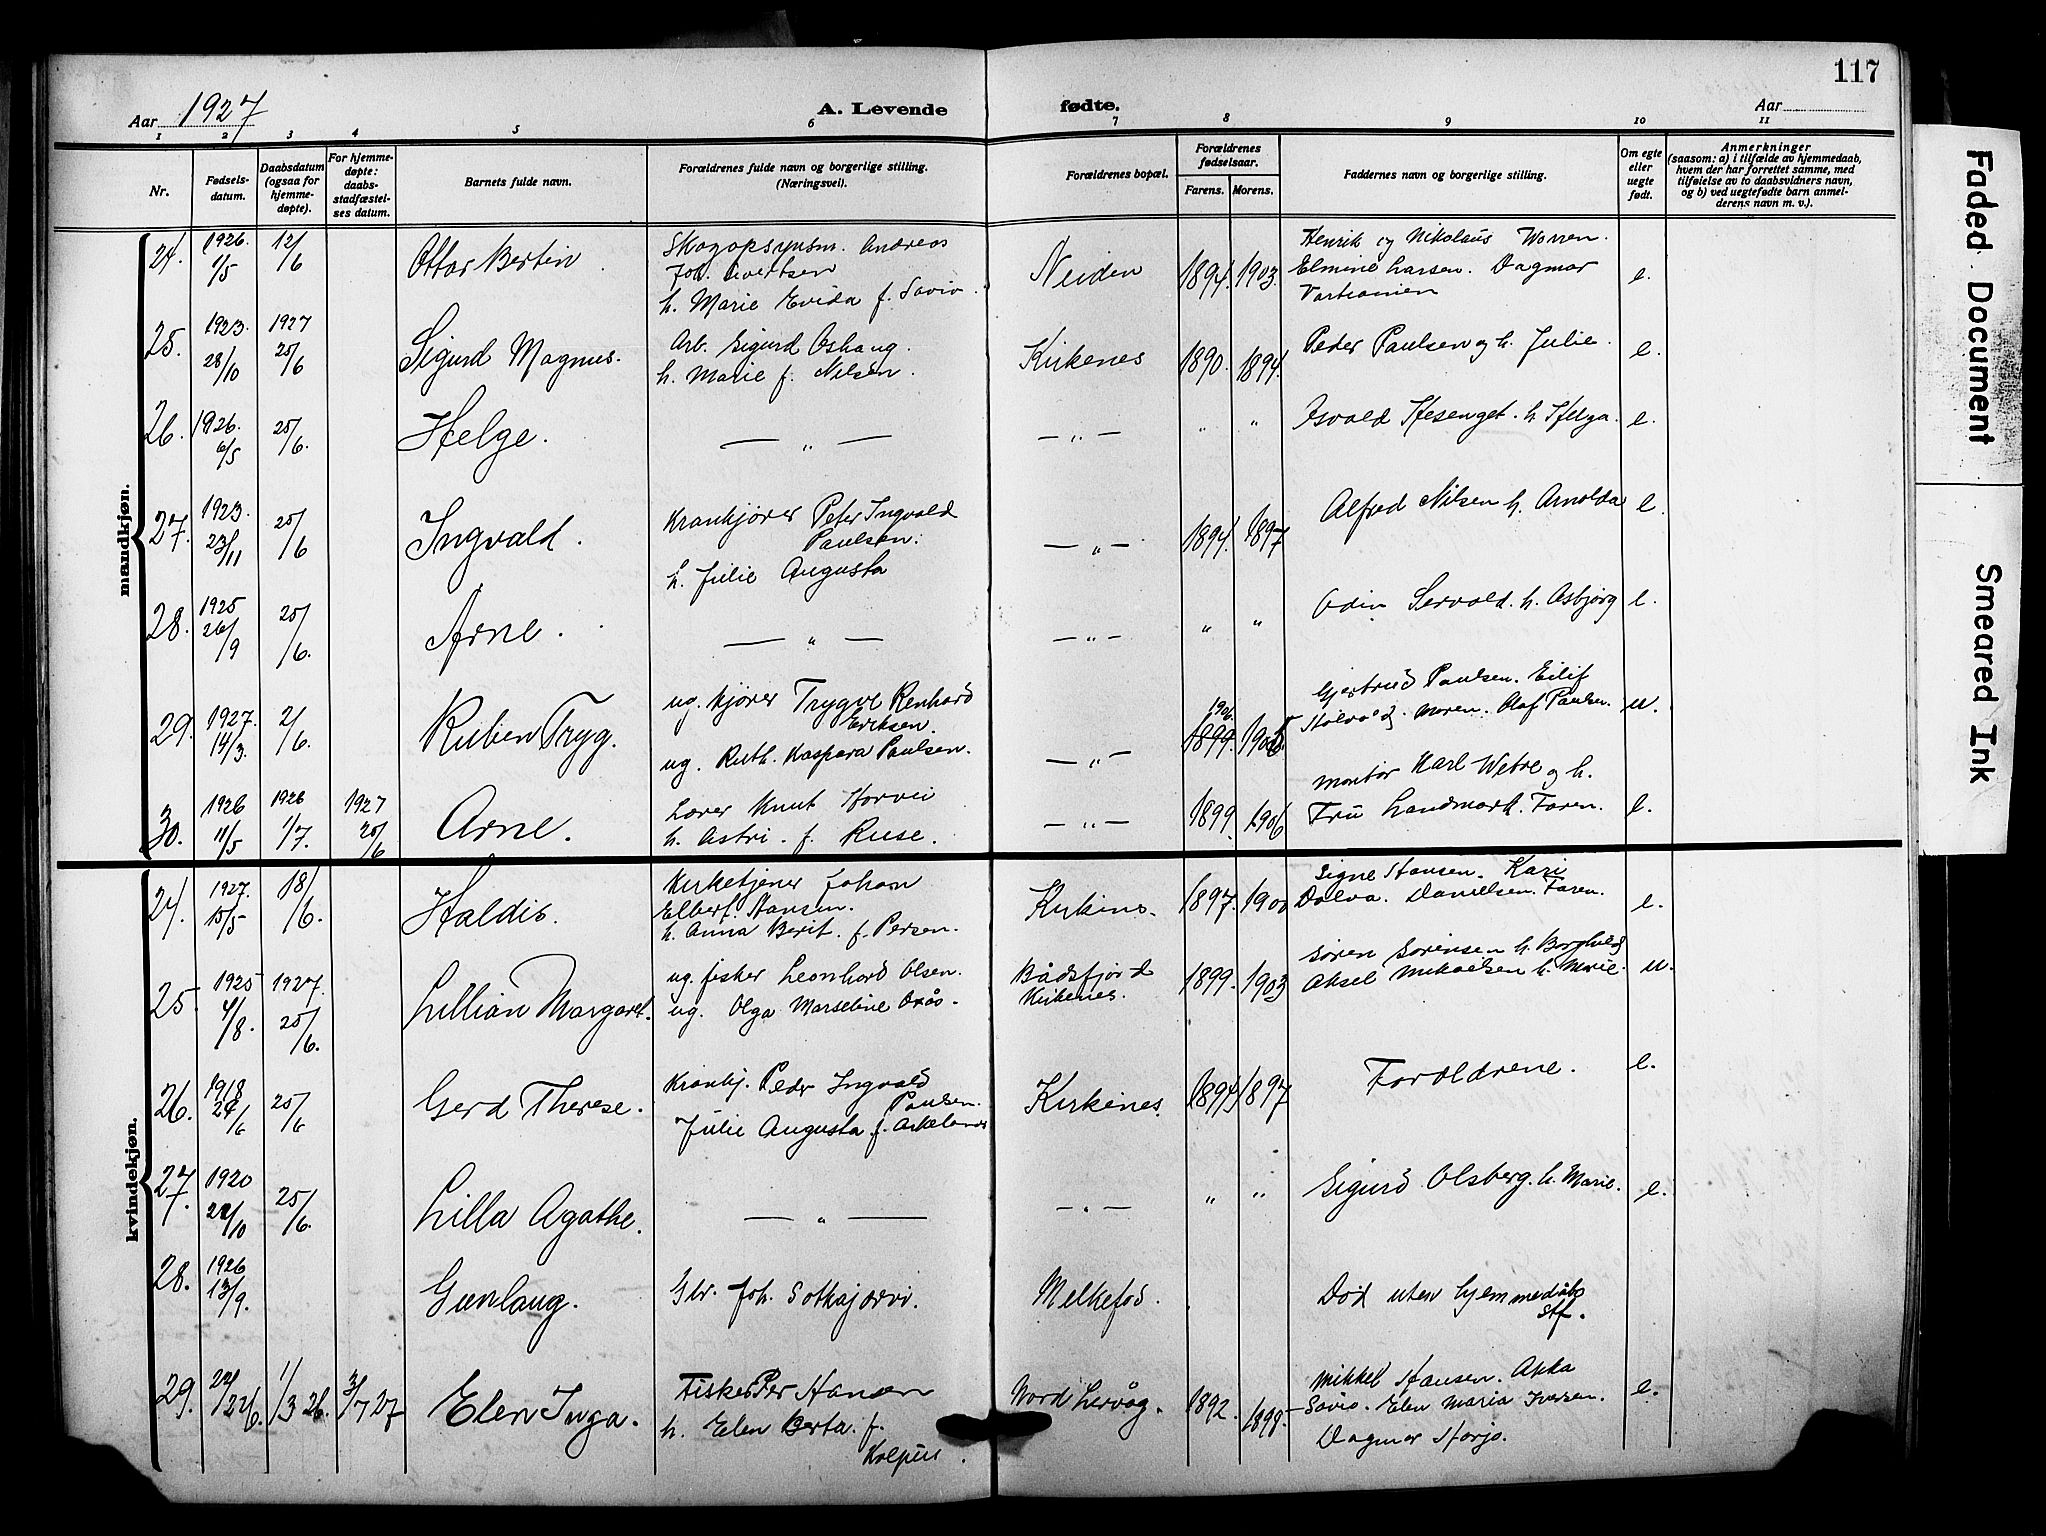 117
Aar 1927
A. Levende
fødte.
Aar
1 2 3 4 5 6 7 8 9 10 11
Nr.
Fødsels-
datum.
Daabsdatum
(ogsaa for
hjemme-
døpte).
For hjemme-
døpte:
daabs-
stadfæstel-
ses datum.
Barnets fulde navn.
Forældrenes fulde navn og borgerlige stilling.
(Næringsvei).
Forældrenes bopæl.
Forældrenes
fødselsaar.
Farens. Morens.
Faddernes navn og borgerlige stilling.
Om egte
eller
uegte
født.
Anmerkninger
(saasom: a) i tilfælde av hjemmedaab,
hvem der har forrettet samme, med
tilføielse av to daabsvidners navn,
og b) ved uegtefødte barn anmel-
derens navn m. v.).
mandkjøn.
24. 1926. 1/5 12/6
Ottar Bertin
Skogopsynsm. Andreas
Joh.
h. Marie Evida f. Savio.
Neiden 1894. 1903.
Henrik og Nikolaus
Elmine Larsen. Dagmar
e.
25. 1923. 28/10 1927 25/6
Sigurd Magnus.
Arb. Sigurd
h. Marie f. Nilsen.
Kirkenes 1890. 1894.
Peder Paulsen og h. Julie.
e.
26. 1926. 6/5 25/6.
Helge.
— " —
— " — " "
Osvald h. Helga. e.
27. 1923. 23/11 25/6
Ingvald.
Krankjører Peter Ingvald
Paulsen.
h. Julie Augusta
— " — 1894. 1897
Alfred Nilsen h. Arnolda e.
28. 1925 26/9 25/6.
Arne.
— " —
— " — " "
Odin h. Asbjørg e.
29. 1927. 14/3. 2/6.
Ruben Tryg.
ug. kjører Trygve Renhard
Eriksen.
ug. Ruth. Kaspara Paulsen.
— " — 1906. 1899. 1906
Gjertrud Paulsen. Eilif
Moren. Olaf Paulsen. u.
30. 1926 11/5 1926 1/7. 1927 25/6
Arne.
Lærer Knut
h. Astri. f. Ruse.
— " — 1899. 1906
Montør Karl Wetre og h.
Fru Landmark. Faren. e.
kvindekjøn.
24. 1927. 15/5 18/6.
Haldis.
Kirketjener Johan
Elbert. Hansen.
h. Anna Berit. f. Persen.
Kirkenes. 1897. 1900
Signe Hansen. Kari
Dalva. Danielsen. Faren.
e.
25. 1925 4/8. 1927. 25/6.
Lillian Margaret.
ug. fisker Leonhard Olsen.
ug. Olga Marseline
Bådsfjord
Kirkenes.
1899. 1903
Søren Sørensen h. Borghild
Aksel Mikaelsen h. Marie.
u.
26. 1918 24/6 25/6
Gerd Therese.
Krankj. Peder Ingvald
Paulsen.
Julie Augusta f.
Kirkenes. 1894 1897
Foreldrene.
e.
27. 1920 22/10 25/6.
Lilla Agathe.
— " —
— " — " "
Sigurd Olsberg. h. Marie. e.
28. 1926 13/9.
Gunlaug.
Gbr. Joh. Sotkajærvi.
Melkefos.
Død uten hjemmedåbs
stf.
29. 22/12 26. 1/3 26. 3/7 27
Elen Inga.
Fisker Per Hansen
h. Elen Berta. f.
Kolpus.
Nord Lervåg. 1892. 1898.
Mikkel Hansen. Anka
Savio. Elen Maria Iversen.
Dagmar
e.
Faded Document
Smeared Ink